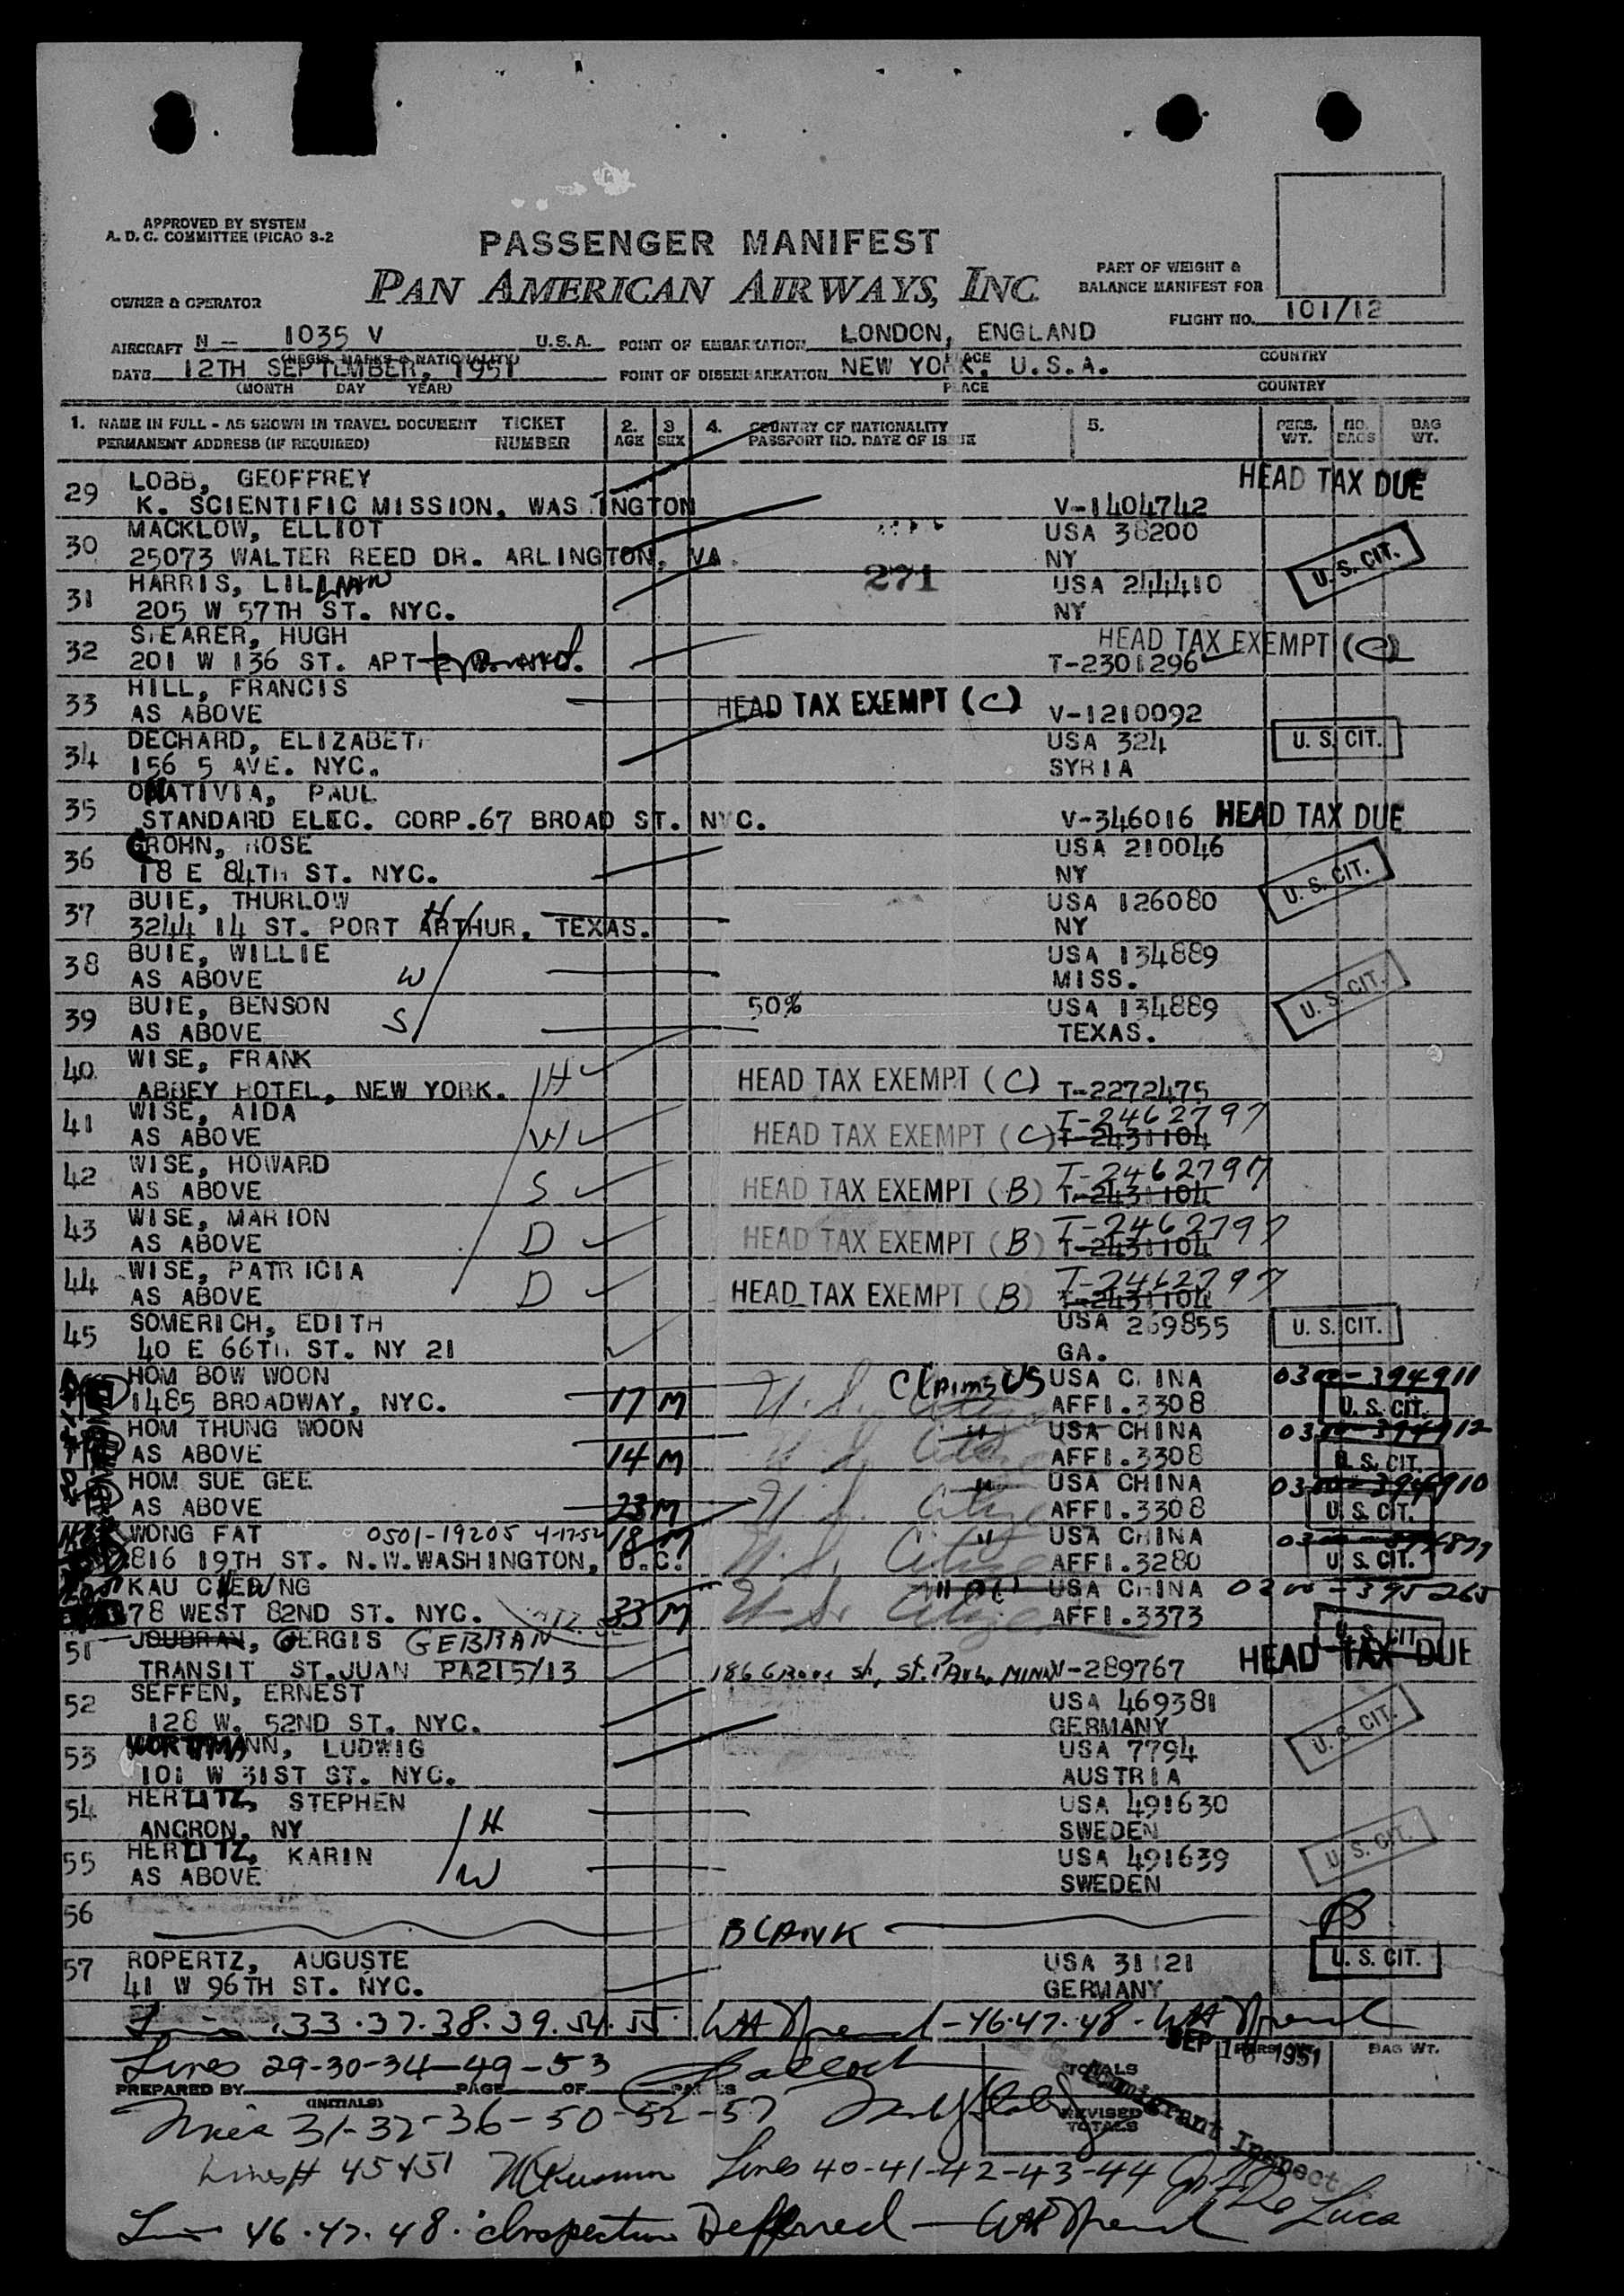 APPROVED BY SYSTEM
A. D. C. COMMITTEE (PICAO 3-2
PASSENGER MANIFEST
PAN AMERICAN AIRWAYS, INC
PART OF WEIGHT &
BALANCE MANIFEST FOR
OWNER & OPERATOR
FLIGHT NO. 101/12
AIRCRAFT N - 1035 V U.S.A. POINT OF EMBARKATION LONDON, ENGLAND
(REGIS. MARKS & NATIONALITY) PLACE COUNTRY
DATE 12TH SEPTEMBER, 1951 POINT OF DISEMBARKATION NEW YORK, U.S.A.
(MONTH DAY YEAR) PLACE COUNTRY
1. NAME IN FULL - AS SHOWN IN TRAVEL DOCUMENT TICKET 2. 3 4. COUNTRY OF NATIONALITY 5. PERS. NO. BAG
PERMANENT ADDRESS (IF REQUIRED) NUMBER AGE SEX PASSPORT NO. DATE OF ISSUE WT. BAGS WT.
29 LOBB, GEOFFREY HEAD TAX DUE
K. SCIENTIFIC MISSION, WAS INGTON V-1404742
30 MACKLOW, ELLIOT USA 38200
25073 WALTER REED DR. ARLINGTON, VA. NY U.S. CIT.
31 HARRIS, LILLIAN 271 USA 244410
205 W 57TH ST. NYC. NY
32 S EARER, HUGH HEAD TAX EXEMPT (C)
201 W 136 ST. APT T-2301296
33 HILL, FRANCIS HEAD TAX EXEMPT (C)
AS ABOVE V-1210092
34 DECHARD, ELIZABETH USA 324 U. S. CIT.
156 5 AVE. NYC. SYRIA
35 ONATIVIA, PAUL
STANDARD ELEC. CORP.67 BROAD ST. NYC. V-346016 HEAD TAX DUE
36 GROHN, ROSE USA 210046
18 E 84TH ST. NYC. NY U. S. CIT.
37 BUIE, THURLOW H USA 126080
3244 14 ST. PORT ARTHUR, TEXAS. NY
38 BUIE, WILLIE USA 134889
AS ABOVE W MISS. U. S. CIT.
39 BUIE, BENSON 50% USA 134889
AS ABOVE S TEXAS.
40 WISE, FRANK
ABBEY HOTEL, NEW YORK. H HEAD TAX EXEMPT (C) T-2272475
41 WISE, AIDA T-2462797
AS ABOVE W HEAD TAX EXEMPT (C) T-2431104
42 WISE, HOWARD T-2462797
AS ABOVE S HEAD TAX EXEMPT (B) T-2431104
43 WISE, MARION T-2462797
AS ABOVE D HEAD TAX EXEMPT (B) T-2431104
44 WISE, PATRICIA T-2462797
AS ABOVE D HEAD TAX EXEMPT (B) T-2431104
45 SOMERICH, EDITH USA 269855 U. S. CIT.
40 E 66TH ST. NY 21 GA.
HOM BOW WOON Claims US USA C INA 0300-394911
1485 BROADWAY, NYC. 17 M U. S. Citizen AFFI.3308 U. S. CIT.
HOM THUNG WOON " USA CHINA 0300-394912
AS ABOVE 14 M U. S. Citizen AFFI.3308 U. S. CIT.
HOM SUE GEE " USA CHINA 0300-394910
AS ABOVE 23 M U. S. Citizen AFFI.3308 U. S. CIT.
WONG FAT 0501-19205 4-17-52 18 M " USA CHINA
816 19TH ST. N.W.WASHINGTON, D.C. U. S. Citizen AFFI.3280 U. S. CIT.
KAU CHEWNG USA CHINA 0300-395265
78 WEST 82ND ST. NYC. 33 M U. S. Citizen AFFI.3373
U. S. CIT.
51 JOUBRAN, GERGIS GEBRAN HEAD TAX DUE
TRANSIT ST.JUAN PA215/13 186 St, St. Paul, MINN V-289767
52 SEFFEN, ERNEST USA 469381
128 W. 52ND ST. NYC. GERMANY U. S. CIT.
53 WORTMANN, LUDWIG USA 7794
101 W 31ST ST. NYC. AUSTRIA
54 HERLITZ, STEPHEN USA 491630
ANCRON, NY H SWEDEN
55 HERLITZ, KARIN USA 491639 U. S. CIT.
AS ABOVE W SWEDEN
56 BLANK
57 ROPERTZ, AUGUSTE USA 31121 U. S. CIT.
41 W 96TH ST. NYC. GERMANY
Lines 33.37.38.39.54.55. - 46.47.48 -
SEP 1951
Lines 29-30-34-49-53
TOTALS PERS. WT. BAG WT.
PREPARED BY PAGE OF PAGES
(INITIALS)
Lines 31-32-36-50-52-57
REVISED TOTALS
Immigrant Inspector
Lines# 45+51 Lines 40-41-42-43-44 De Luca
Lines 46.47.48. Inspection Deferred